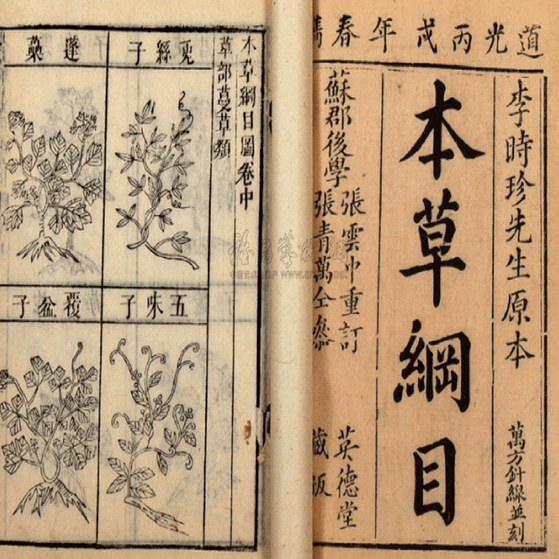 道光丙戌年春鐫
李時珍先生原本
萬方針線並刻
本草綱目
蘇郡後學
張雲中重訂
張青萬仝參
英德堂
藏板
本草綱目圖卷中
草部蔓草類
菟絲子
蓬蘽
五味子
覆盆子